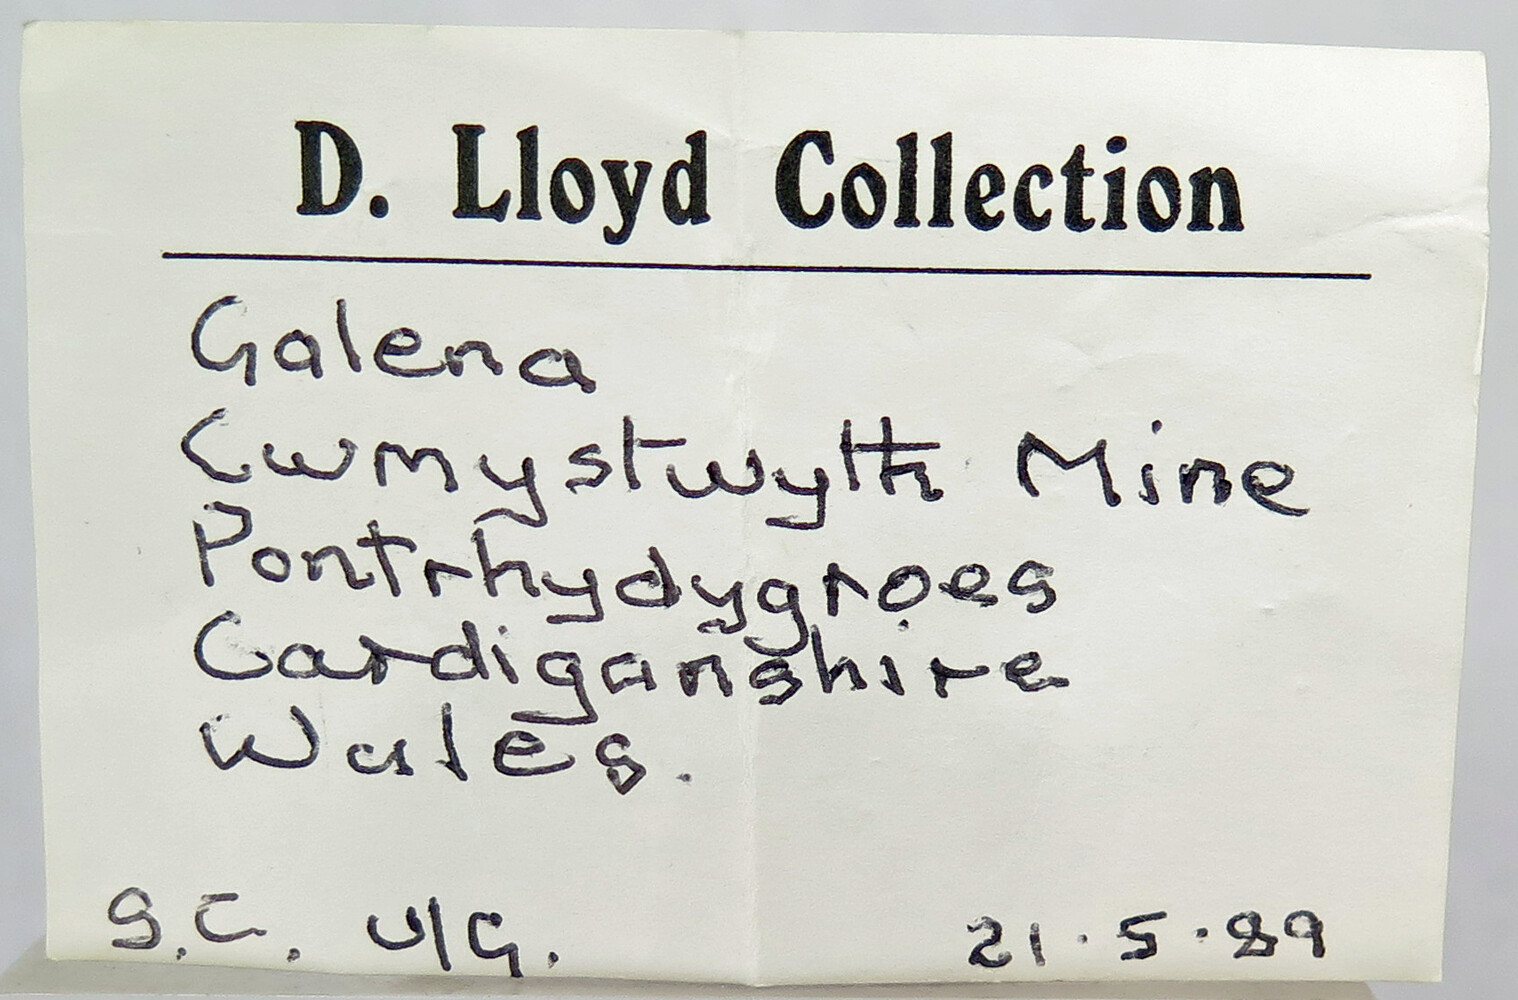 D. Lloyd Collection
Galena
Cwmystwyth Mine
Pontrhydygroes
Cardiganshire
Wales.
S.C. U/G. 21.5.89